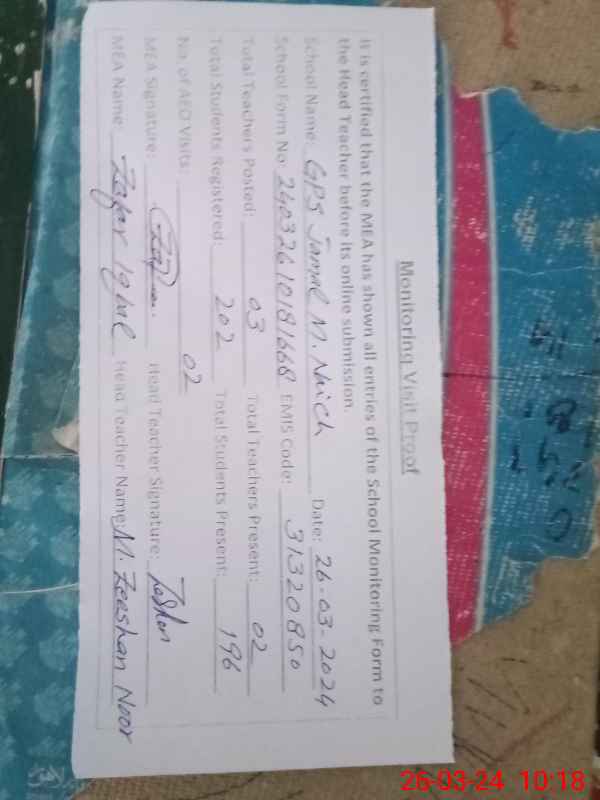 Monitoring Visit Proof
It is certified that the MEA has shown all entries of the School Monitoring Form to
the Head Teacher before its online submission.
School Name: GPS Jamal M. Naich Date: 26-03-2024
School Form No: 24032610181668 EMIS Code: 31320850
Total Teachers Posted: 03 Total Teachers Present: 02
Total Students Registered: 202 Total Students Present: 196
No. of AEO Visits: 02
MEA Signature: Head Teacher Signature: Zeshan
MEA Name: Zafar Iqbal Head Teacher Name: M. Zeeshan Noor
26-03-24 10:18